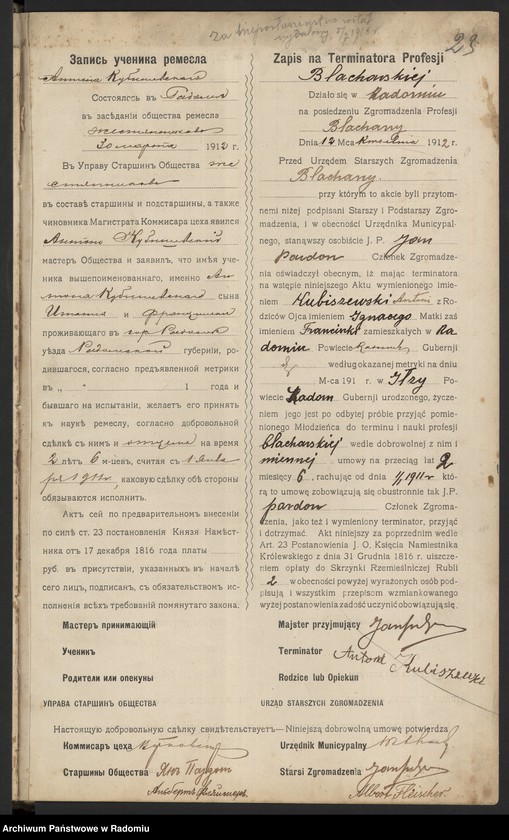 29
Запись ученика ремесла
Состоялось въ Радоме
въ засѣданіи общества ремесла
30 марта 1912 г.
Въ Управу Старшинъ Общества
въ составѣ старшины и подстаршины, а также
чиновника Магистрата Комиссара цеха явился
мастеръ Общества и заявилъ, что имѣя учени-
ка вышепоименованнаго, именно
сына
Игнатія и
проживающаго въ гор.
уѣзда губерніи, ро-
дившагося, согласно предъявленной метрики
въ „ " 1 года и
бывшаго на испытаніи, желаетъ его принять
къ наукѣ ремеслу, согласно добровольной
сдѣлкѣ съ нимъ и на время
2 лѣтъ 6 м-цевъ, считая съ 1
1911, каковую сдѣлку обѣ стороны
обязываются исполнить.
Актъ сей по предварительномъ внесеніи
по силѣ ст. 23 постановленія Князя Намѣст-
ника отъ 17 декабря 1816 года платы
руб. въ присутствіи, указанныхъ въ началѣ
сего лицъ, подписанъ, съ обязательствомъ ис-
полненія всѣхъ требованій помянутаго закона.
Мастеръ принимающій
Ученик
Родители или опекуны
УПРАВА СТАРШИНЪ ОБЩЕСТВА
Zapis na Terminatora Profesji
Blacharskiej
Działo się w Radomiu
na posiedzeniu Zgromadzenia Profesji
Blachary
Dnia 12 Mca Kwietnia 1912 r.
Przed Urzędem Starszych Zgromadzenia
Blachary.
przy którym to akcie byli przytom-
nemi niżej podpisani Starszy i Podstarszy Zgro-
madzenia, i w obecności Urzędnika Municypal-
nego, stanąwszy osobiście J. P. Jan
Pardon Członek Zgromadze-
nia oświadczył obecnym, iż mając terminatora
na wstępie niniejszego Aktu wymienionego imie-
niem Kubiszewski Antoni z Ro-
dziców Ojca imieniem Ignacego Matki zaś
imieniem Franciszki zamieszkałych w Ra
domiu Powiecie Gubernji
według okazanej metryki na dniu
M-ca 191 r. w Iłży Po-
wiecie Radom Gubernji urodzonego, życze-
niem jego jest po odbytej próbie przyjąć pomie-
nionego Młodzieńca do terminu i nauki profesji
blacharskiej wedle dobrowolnej z nim i
miennej umowy na przeciąg lat 2
miesięcy 6, rachując od dnia 1/1 1911 r. któ-
rą to umowę zobowiązują się obustronnie tak J.P.
pardon Członek Zgroma-
dzenia, jako też i wymieniony terminator, przyjąć
i dotrzymać. Akt niniejszy za poprzednim wedle
Art. 23 Postanowienia J. O. Księcia Namiestnika
Królewskiego z dnia 31 Grudnia 1816 r. uiszcze-
niem opłaty do Skrzynki Rzemieślniczej Rubli
2 w obecności powyżej wyrażonych osób pod-
pisują i wszystkim przepisom wzmiankowanego
wyżej postanowienia zadość uczynić obowiązują się.
Majster przyjmujący
Terminator Antoni Kubiszewski
Rodzice lub Opiekun
URZĄD STARSZYCH ZGROMADZENIA
Настоящую добровольную сдѣлку свидѣтельствуетъ—Niniejszą dobrowolną umowę potwierdza
Коммисаръ цеха
Urzędnik Municypalny
Старшины Общества Янъ Пардонъ
Альбертъ Флейшеръ.
Starsi Zgromadzenia
Albert Fleischer.
Archiwum Państwowe w Radomiu